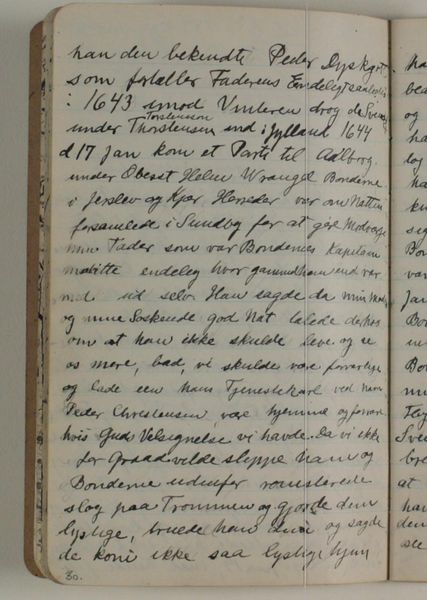 han den bekendte Peder Dyskjøt
som fortæller Faderens Endeligt saaledes
: 1643 imod Vinteren drog de Svenske
under Thorstensen Torstensson ind i Jylland 1644
d 17 Jan kom et Parti til Aalborg
under Oberst Helm Wrangel Bønderne
i Jerslev og Kjær Herreder var om Natten
forsamlede i Sundby for at gøre Modværge
min Fader som var Bøndernes Kapitain
maatte endeleg hvor gammel han end var
med ud selv. Han sagde da min Moder
og mine Søskende god Nat talede derhos
om at han ikke skulde leve og se
os mere, bad, vi skulde være forsigtige
og lade een hans Tjenestekarl ved Navn
Peder Christensen, være hjemme og forvare
hvis Guds Velsignelse vi havde. Da vi ikke
for Graad vilde slippe ham og
Bønderne udenfor
slog paa Trommen og gjorde dem
lystige, truede han dem og sagde
de kom ikke saa lystige hjem
80.